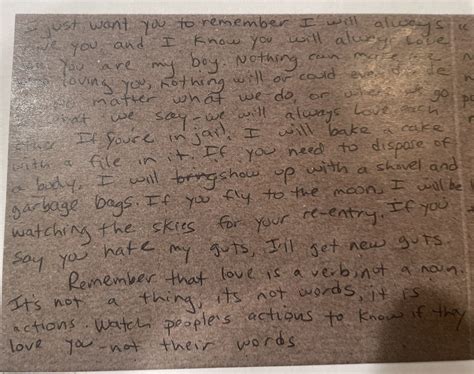 I just want you to remember I will always
love you, and I know you will always love
you are my boy. Nothing can make me
loving you, nothing will or could ever
matter what we do, or where we go
what we say - we will always love each
other. If you're in jail, I will bake a cake
with a file in it. If you need to dispose of
a body, I will show up with a shovel and
garbage bags. If you fly to the moon, I will be
watching the skies for your re-entry. If you
say you hate my guts, I'll get new guts.
Remember that love is a verb, not a noun.
It's not a thing, its not words, it is
actions. Watch people's actions to know if they
love you - not their words